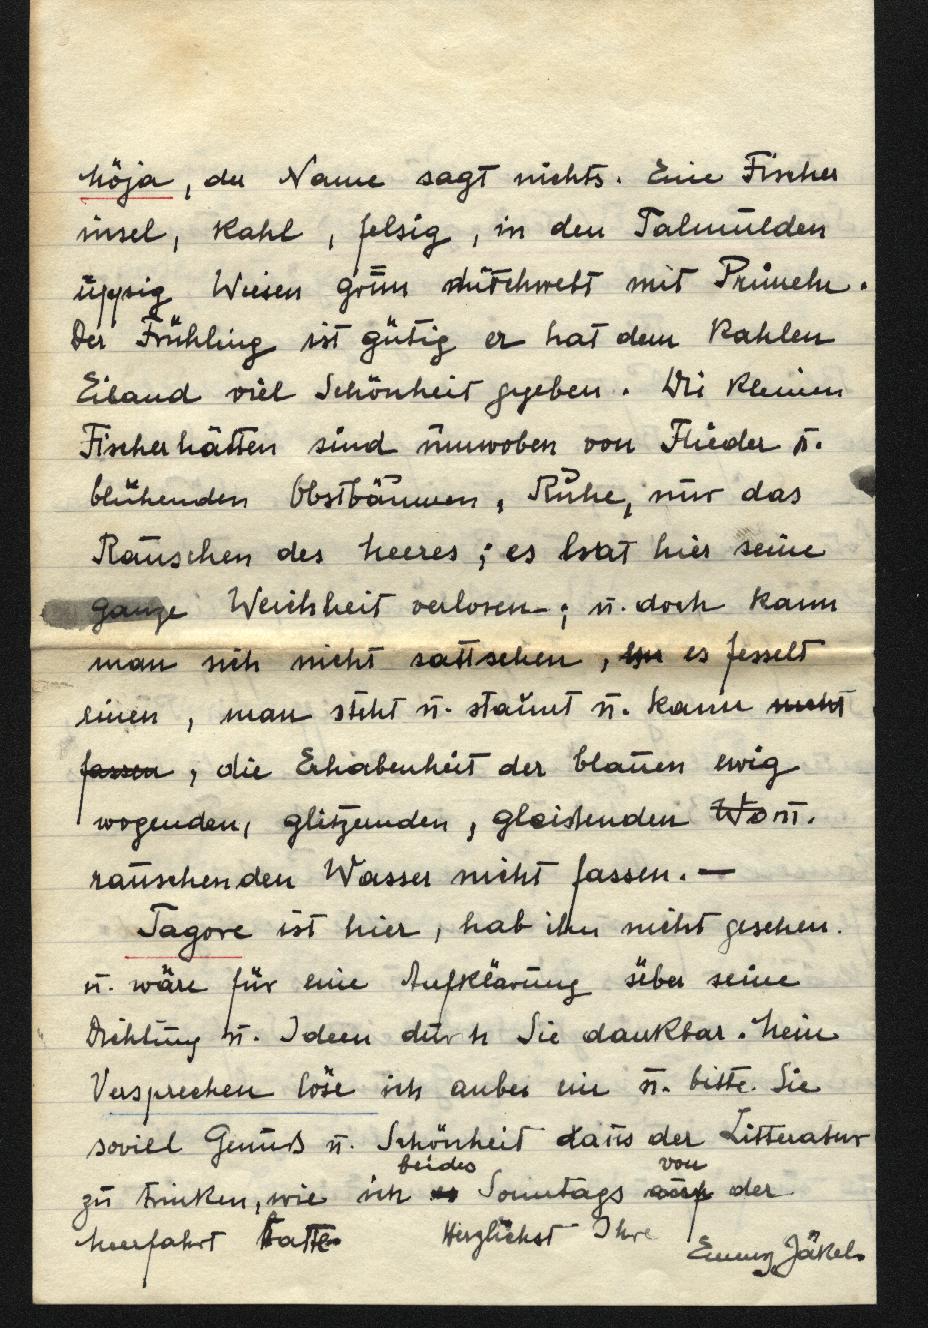 Möja, der Name sagt nichts. Eine Fischer
insel, kahl, felsig, in den Talmulden
üppig Wiesen grün durchwebt mit Primeln.
Der Frühling ist gütig er hat dem kahlen
Eiland viel Schönheit gegeben. Die kleinen
Fischerhütten sind umwoben von Flieder u.
blühenden Obstbäumen, Ruhe, nur das
Rauschen des Meeres; es hat hier seine
ganze Weichheit verloren; u. doch kann
man sich nicht sattsehen, es fesselt
einen, man steht u. staunt u. kann nicht
fassen, die Erhabenheit der blauen ewig
wogenden, glitzernden, gleisenden u.
rauschenden Wasser nicht fassen. —
Tagore ist hier, hab ihn nicht gesehen.
u. wäre für eine Aufklärung über seine
Dichtung u. Ideen durch Sie dankbar. Mein
Versprechen löse ich anbei ein u. bitte Sie
soviel Genuß u. Schönheit aus der Litteratur
zu trinken, wie ich beides Sonntags von der
Meerfahrt hatte Herzlichst Ihre
Emmy Jäkel.